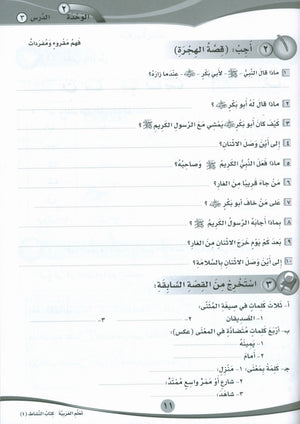 الوحدة ٢ الدرس ٣
فهم مقروء ومفردات
٢ أجب: (قصة الهجرة)
١ ماذا قال النبي - ﷺ - لأبي بكر - ﷺ - عندما زاره؟
٢ ماذا قال له أبو بكر ؟
٣ كيف كان أبو بكر يمشي مع الرسول الكريم ﷺ ؟
٤ إلى أين وصل الاثنان؟
٥ ماذا فعل النبي الكريم ﷺ وصاحبه؟
٦ من جاء قريبا من الغار؟
٧ على من خاف أبو بكر ؟
٨ بماذا أجابه الرسول الكريم ﷺ ؟
٩ بعد كم يوم خرج الاثنان من الغار؟
١٠ إلى أين وصل الاثنان بالسلامة؟
٣ استخرج من القصة السابقة:
أ- ثلاث كلمات في صيغة المثنى:
١- الصديقان ٢- ٣-
ب- أربع كلمات متضادة في المعنى (عكس):
١- يمينه
٢- أمام
ج- كلمة بمعنى: ١- منزل:
٢- شارع أو ممر واسع ممتد:
٣- شاهد:
١١
تعلم العربية كتاب النشاط (١)